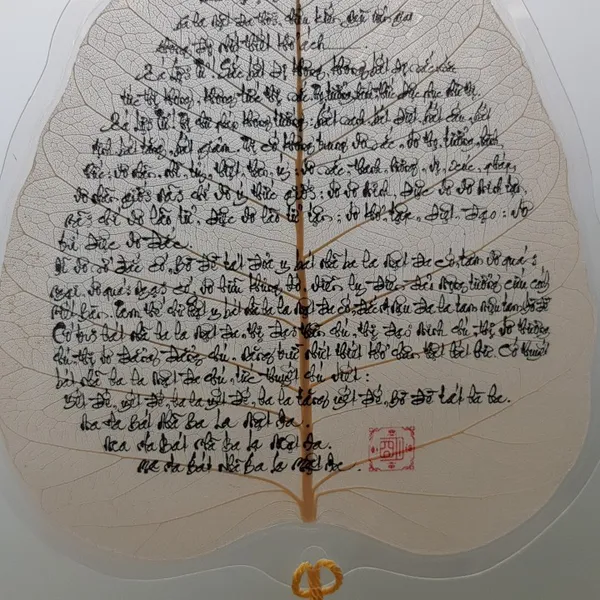 ba la mật đa thời, chiếu kiến ngũ uẩn giai
không, độ nhất thiết khổ ách.
Xá Lợi Tử! Sắc bất dị không, không bất dị sắc, sắc
tức thị không, không tức thị sắc, thọ, tưởng, hành, thức diệc phục như thị.
Xá Lợi Tử! Thị chư pháp không tướng, bất sanh bất diệt, bất cấu, bất
tịnh bất tăng, bất giảm. Thị cố không trung vô sắc, vô thọ, tưởng, hành,
thức; vô nhãn, nhĩ, tỷ, thiệt, thân, ý; vô sắc, thanh, hương, vị, xúc, pháp,
vô nhãn giới, nãi chí vô ý thức giới; vô vô minh, diệc vô vô minh tận,
nãi chí vô lão tử, diệc vô lão tử tận; vô khổ, tập, diệt, đạo; vô
trí diệc vô đắc.
Dĩ vô sở đắc cố, Bồ đề tát đỏa y bát nhã ba la mật đa cố, tâm vô quái
ngại, vô quái ngại cố, vô hữu khủng bố, viễn ly điên đảo mộng tưởng cứu cánh
Niết bàn. Tam thế chư Phật y bát nhã ba la mật đa cố, đắc A nậu đa la tam miệu tam bồ đề
Cố tri bát nhã ba la mật đa, thị đại thần chú, thị đại minh chú, thị vô thượng
chú, thị vô đẳng đẳng chú, năng trừ nhất thiết khổ chân thật bất hư. Cố thuyết
bát nhã ba la mật đa chú, tức thuyết chú viết:
Yết đế, yết đế, ba la yết đế, ba la tăng yết đế, Bồ đề tát bà ha.
Ma ha Bát Nhã Ba La Mật Đa.
Ma ha Bát Nhã Ba La Mật Đa.
Ma ha Bát Nhã Ba La Mật Đa.